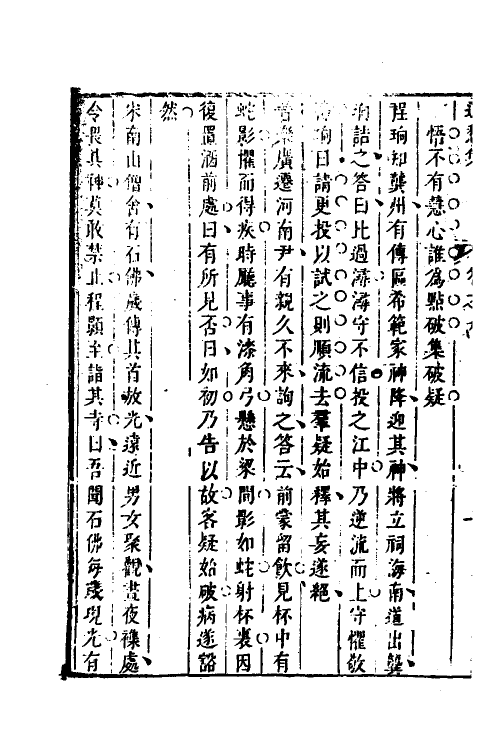 悟不有慧心誰為點破集破疑
程珦知龔州有傳區希範家神降迎其神將立祠海南道出龔
珦詰之答曰比過潯潯守不信投之江中乃逆流而上守懼敬
珦曰請更投以試之則順流去羣疑始釋其妄遂絕
昔樂廣遷河南尹有親久不來詢之答云前蒙留飲見杯中有
蛇影懼而得疾時廳事有漆角弓懸於梁間影如蛇射杯裏因
復置酒前處曰有所見否曰如初乃告以故客疑始破病遂豁
然
宋南山僧舍有石佛歲傳其首放光遠近男女聚觀晝夜襍處
令畏其神莫敢禁止程顥至詣其寺曰吾聞石佛每歲現光有